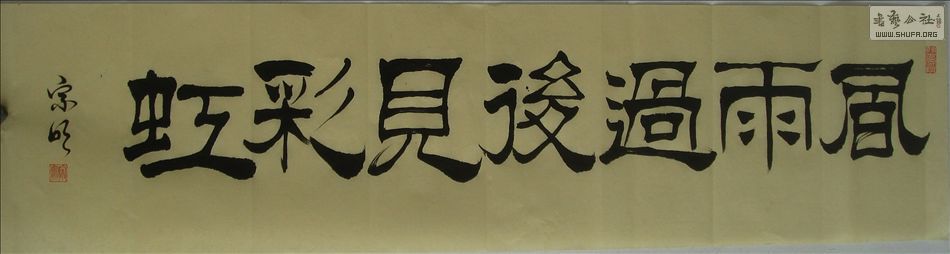 風雨過後見彩虹
宗明
書藝公社
WWW.SHUFA.ORG